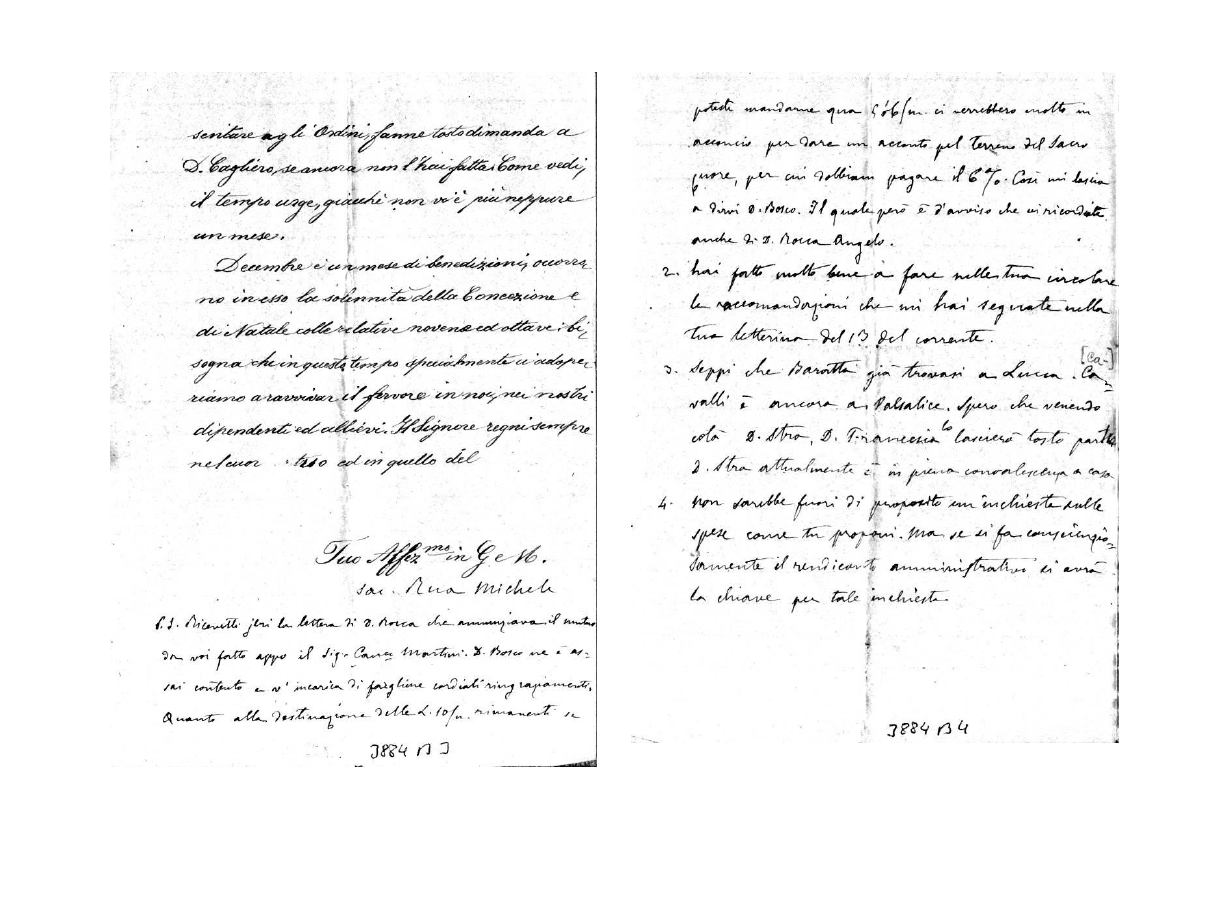 sentare agli Ordini, fanne tosto dimanda a
D. Cagliero, se ancora non l'hai fatta. Come vedi,
il tempo urge, giacchè non vi è più neppure
un mese.
Decembre è un mese di benedizioni, occorro
no in esso la solennità della Concezione e
di Natale colle relative novene ed ottave: bi
sogna che in questo tempo specialmente ci adope
riamo a ravvivar il fervore in noi, nei nostri
dipendenti ed allievi. Il Signore regni sempre
nel cuor tuo ed in quello del
Tuo Affez.mo in G e M.
sac. Rua Michele
P.S. Ricevetti jeri la lettera di D. Rocca che annunziava il mutuo
da voi fatto appo il Sig. Martini. D. Bosco ne è as-
sai contento e v'incarica di fargliene cordiali ringraziamenti.
Quanto alla destinazione delle L. 10/m. rimanenti se
3884 B 3
poteste mandarne qua 5 o 6/m. ci verrebbero molto in
acconcio per dare un acconto pel terreno del Sacro
Cuore, per cui dobbiam pagare il 6 %. Così mi lascia
a dirvi D. Bosco. Il quale però è d'avviso che vi ricordiate
anche di D. Rocca Angelo.
2. hai fatto molto bene a fare nella tua circolare
le raccomandazioni che mi hai segnate nella
tua letterina del 13 del corrente.
[Ca-]
3. Seppi che Baratta già trovasi a Lucca. Ca-
valli è ancora a Valsalice. Spero che venendo
colà D. Stra, D. Francesia lo lascierà tosto partire
D. Stra attualmente è in piena convalescenza a casa.
4. Non sarebbe fuori di proposito un'inchiesta sulle
spese come tu proponi. Ma se si fa coscienzio-
samente il rendiconto amministrativo si avrà
la chiave per tale inchiesta.
3884 B 4